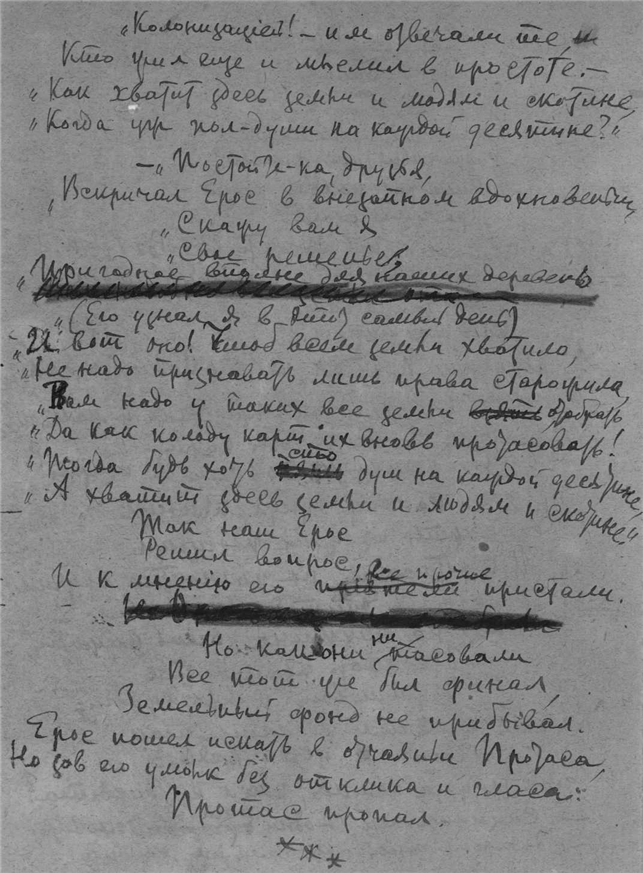 „Колонизаціей! – им отвечали те,
Кто жил еще и мыслил в простоте. –
„Как хватит здесь земли и людям и скотине,
„Когда уж пол-души на каждой десятине?"
– „Постойте-ка, друзья,
„Вскричал Ерос в внезапном вдохновеньи,
„Скажу вам я
„Свое решенье,
„Пригодное вполне для наших деревень
„(Его узнал я в этот самый день)
„И вот оно! чтоб всем земли хватило,
„Не надо признавать лишь права старожила,
„Вам надо у таких все земли взять отобрать
„Да как колоду карт их вновь протасовать!
„Тогда будь хоть сто душ на каждой десятине,
„А хватит здесь земли и людям и скотине"
Так наш Ерос
Решил вопрос,
И к мнению его приятели все прочие пристали.
Но как они ни тасовали
Все тот уже был финал,
Земельный фонд не прибывал.
Ерос пошел искать в отчаяньи Протаса,
Но зов его умолк без отклика и гласа:
Протас пропал.
***